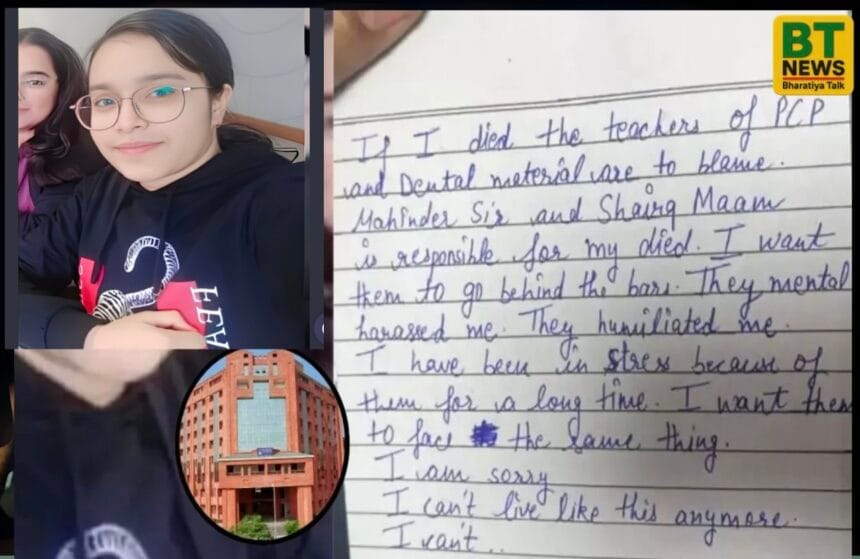 BT
NEWS
Bharatiya Talk
If I died the teachers of PCP
and Dental material are to blame.
Mahinder Sir and Shairg Maam
is responsible for my died. I want
them to go behind the bars. They mental
harassed me. They humiliated me.
I have been in stress because of
them for a long time. I want them
to face the same thing.
I am sorry
I can't live like this anymore.
I can't..